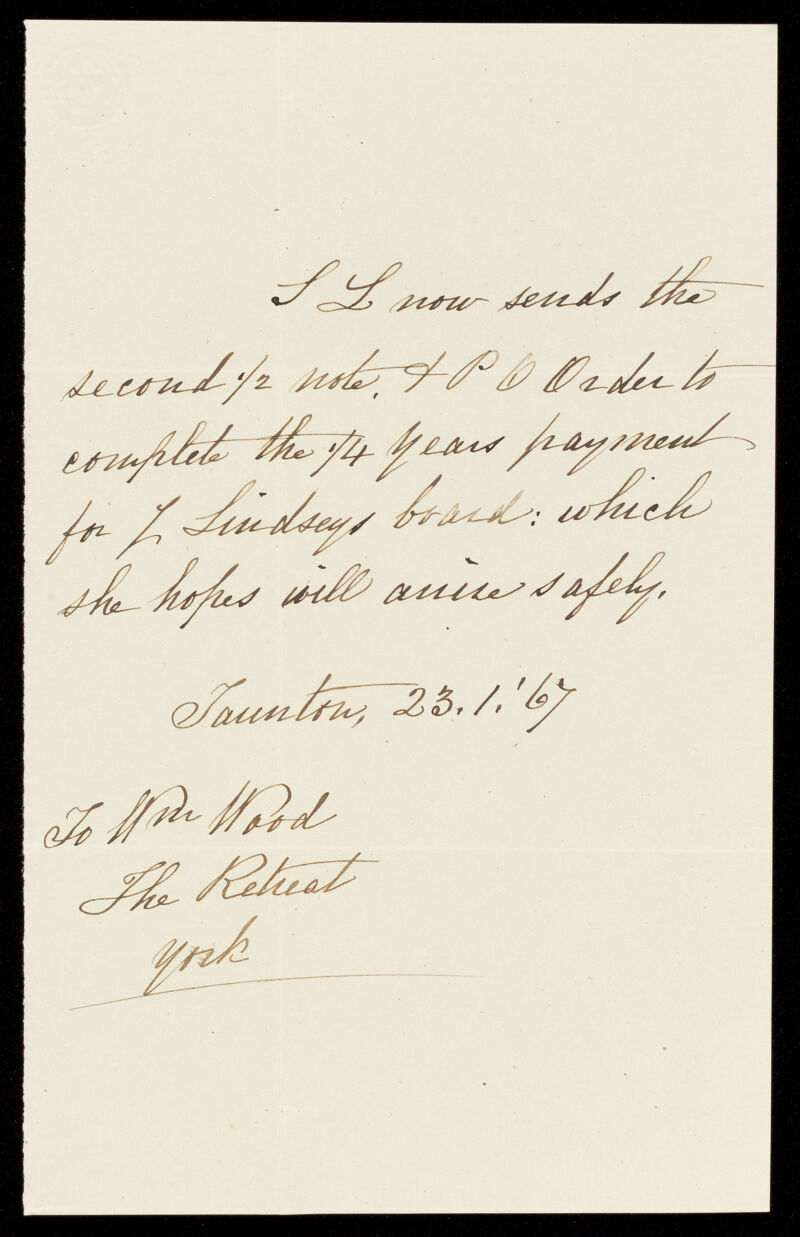 S L now sends the
second 1/2 note, & P O Order to
complete the 1/4 years payment
for L Lindseys board: which
she hopes will arrive safely.
Taunton, 23.1.'67
To Wm Wood
The Retreat
York